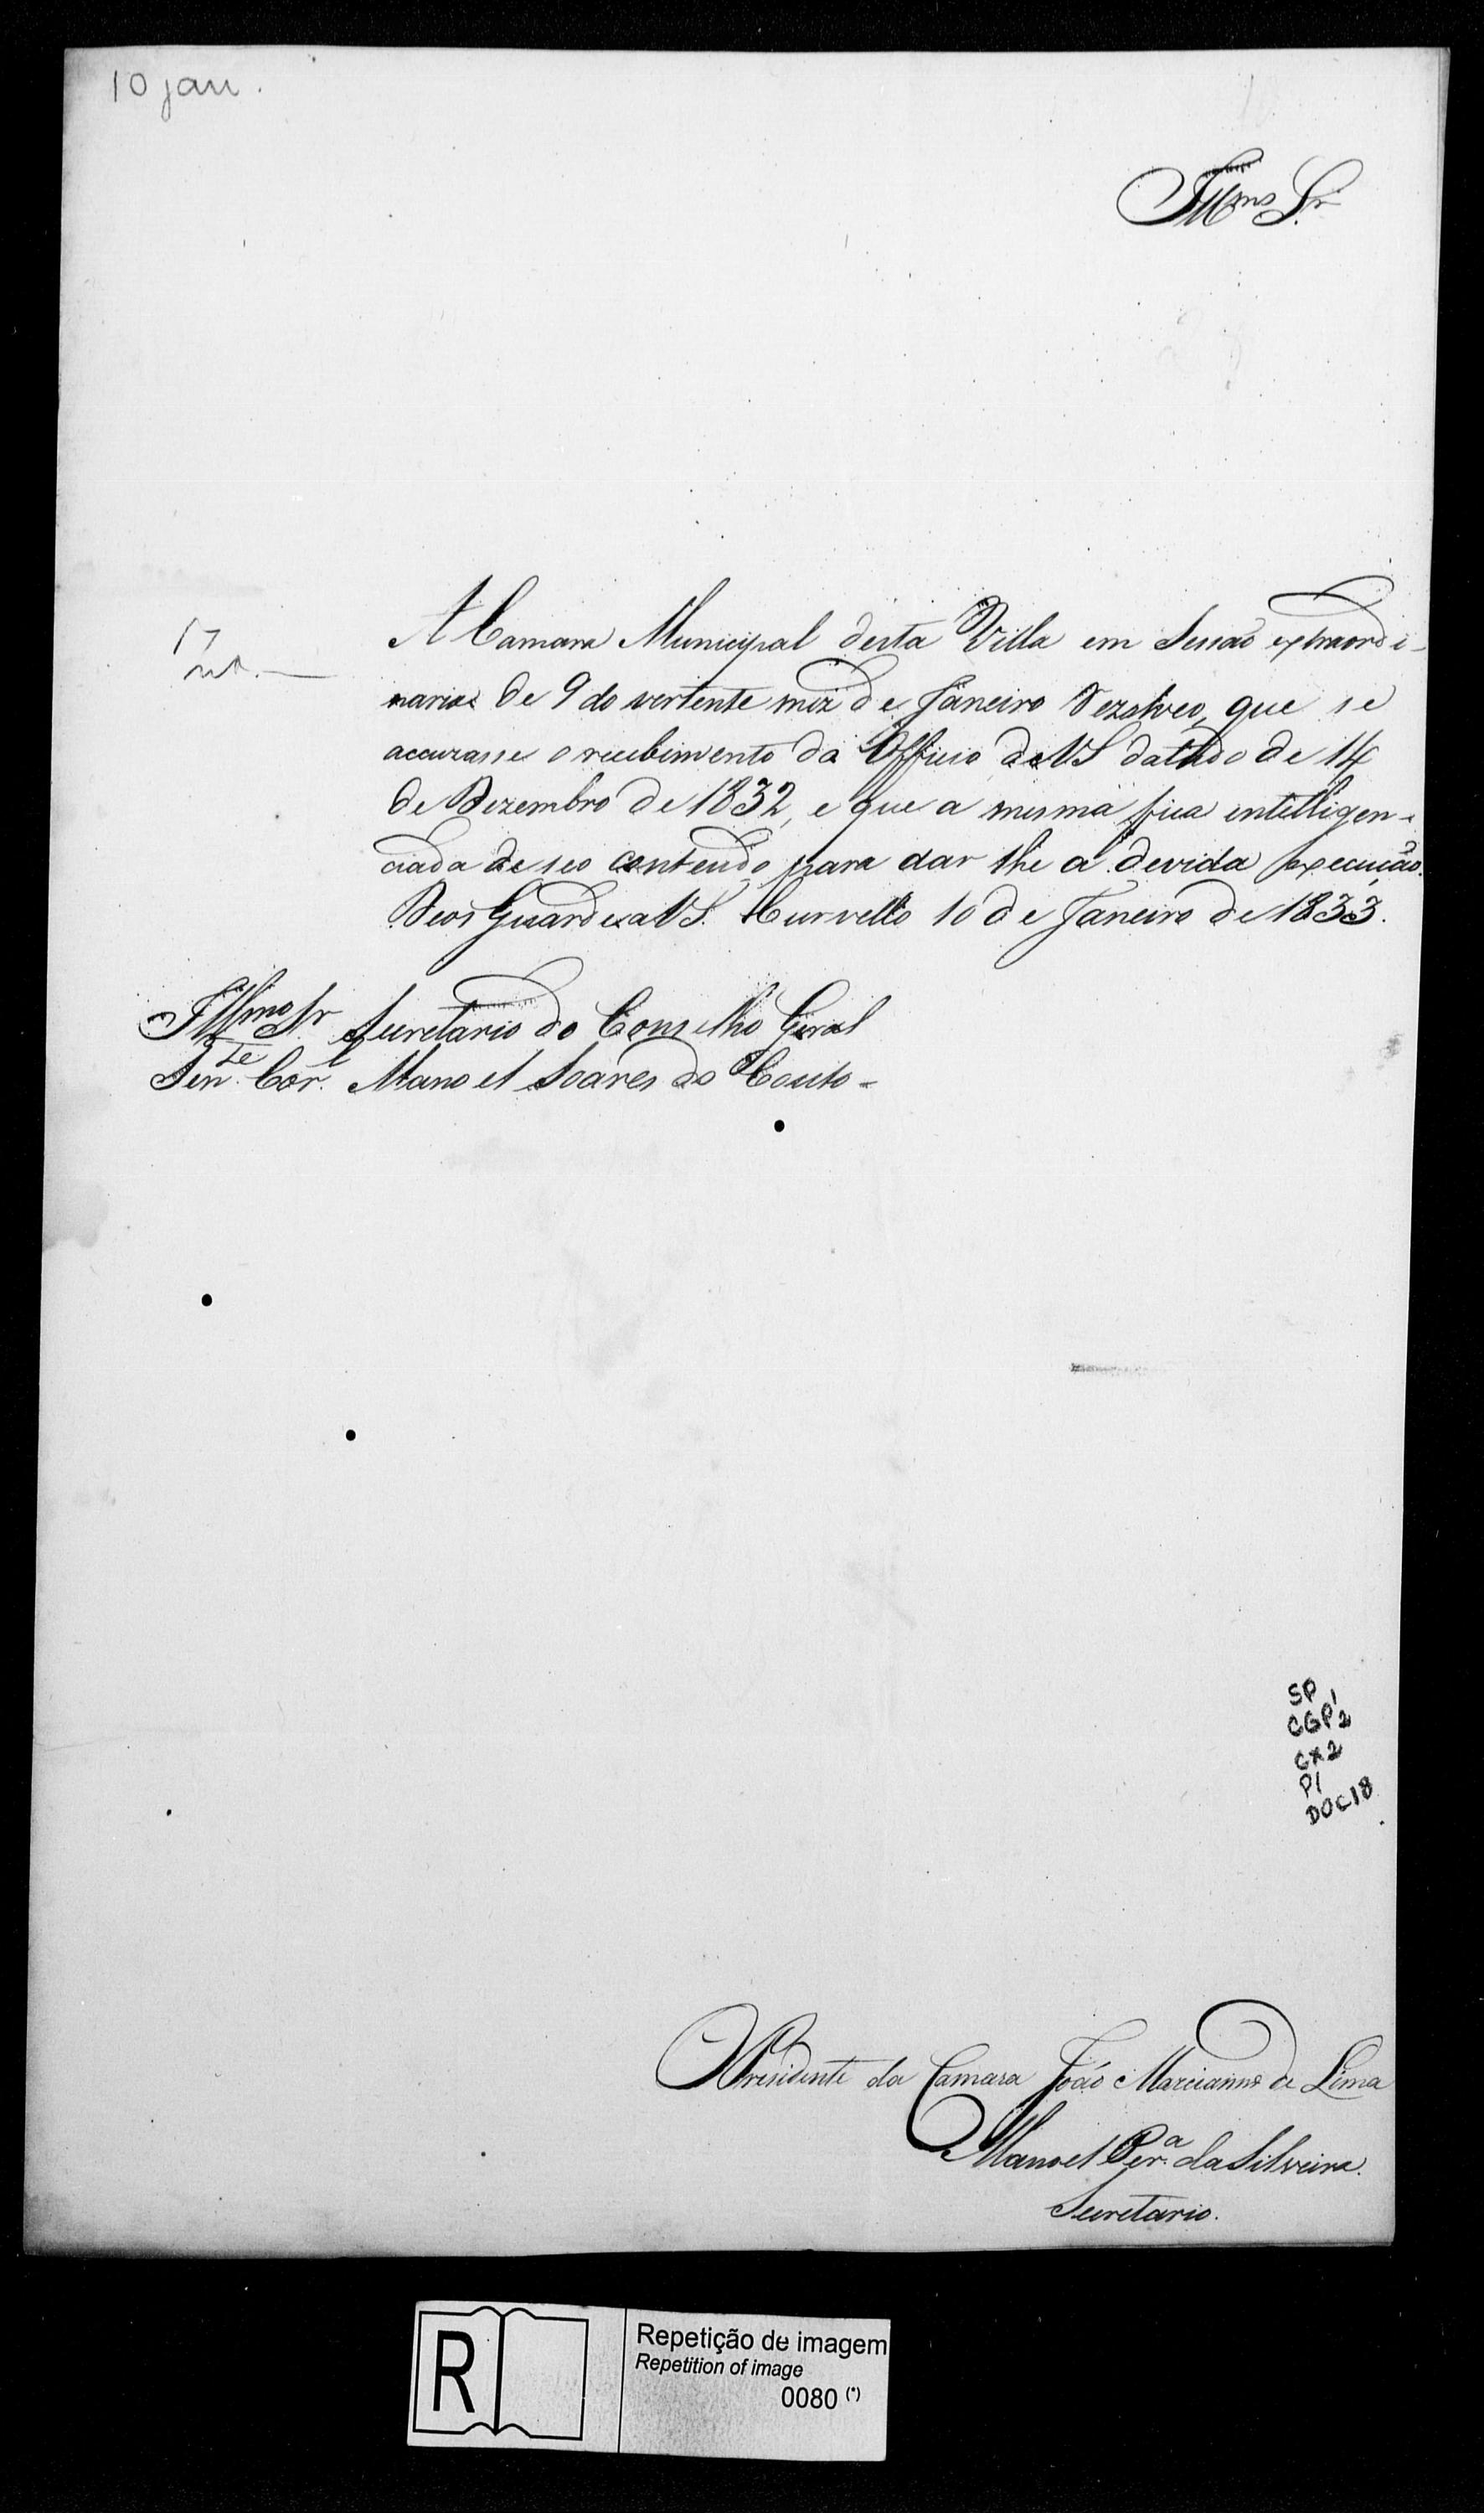 10 jan.
Illmo Sr.
17
A Camara Municipal desta Villa em Sessaõ extraordi-
naria de 9 do vertente mez de Janeiro Rezolveo, que se
accuzasse o recebimento do Officio de VS datado de 14
de Dezembro de 1832, e que a mesma fica intelligen-
ciada de seo contendo para dar lhe a devida execuçaõ.
Deos Guarde a VS. Curvello 10 de Janeiro de 1833.
Illmo Sr. Secretario do Conselho Geral
Ten.te Cor.el Manoel Soares do Couto =
SP 1
CGP2
CX2
P1
DOC18
O Presidente da Camara João Marcianno de Lima
Manoel Per.a da Silveira.
Secretario.
R
Repetição de imagem
Repetition of image
0080 (*)